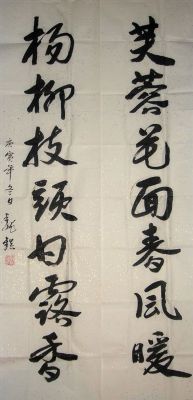 芙蓉花面春风暖
杨柳枝头甘露香
庚寅年冬日